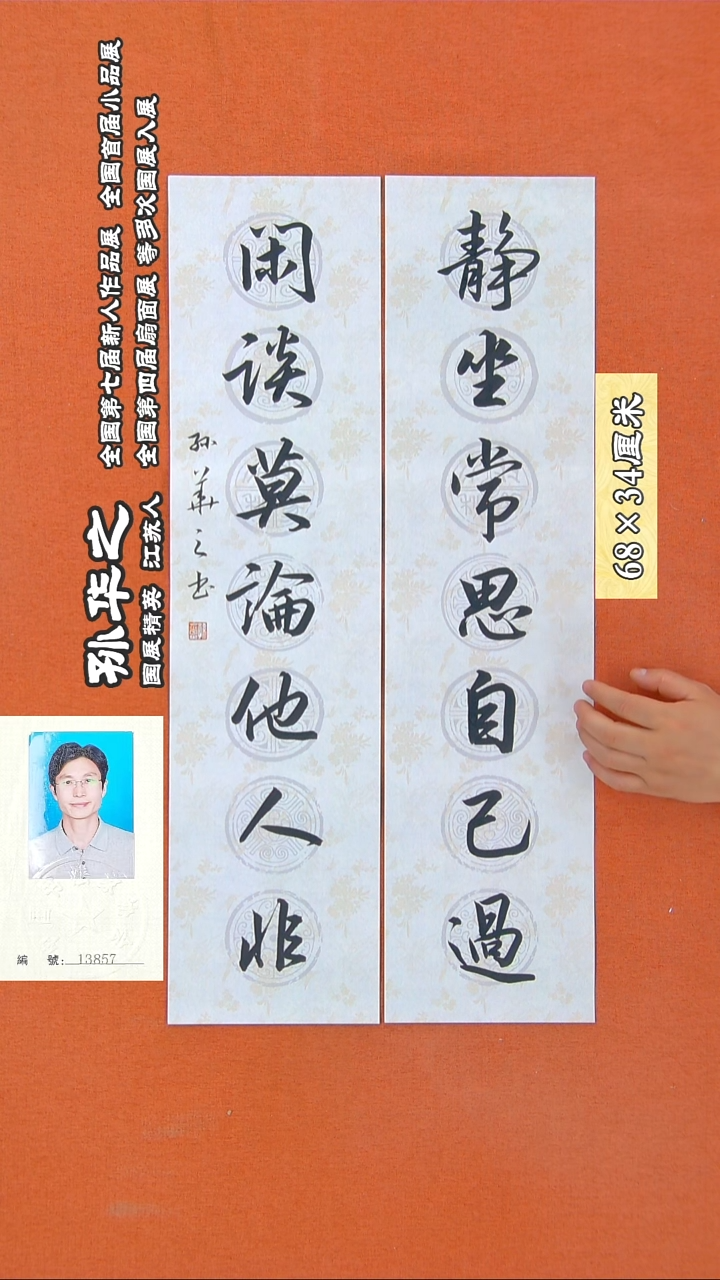 静坐常思自己過
闲谈莫論他人非
孙華之书
68×34厘米
孙华之
国展精英 江苏人
全国第七届新人作品展 全国首届小品展
全国第四届扇面展 等多次国展入展
編 號: 13857